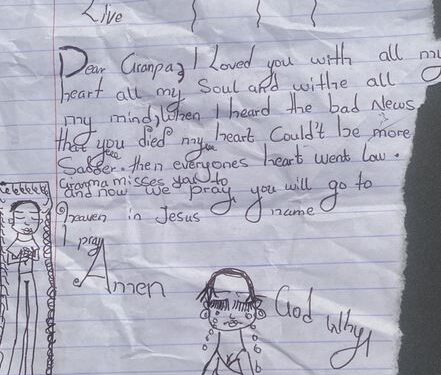 Live
Dear Granpa, I Loved you with all my
heart all my Soul and withe all
my mind, When I heard the bad News
that you died my heart Could't be more
Sadder. then everyones heart went low.
Granma misses you to
and now we pray you will go to
heaven in Jesus name
I pray
Amen
God Why